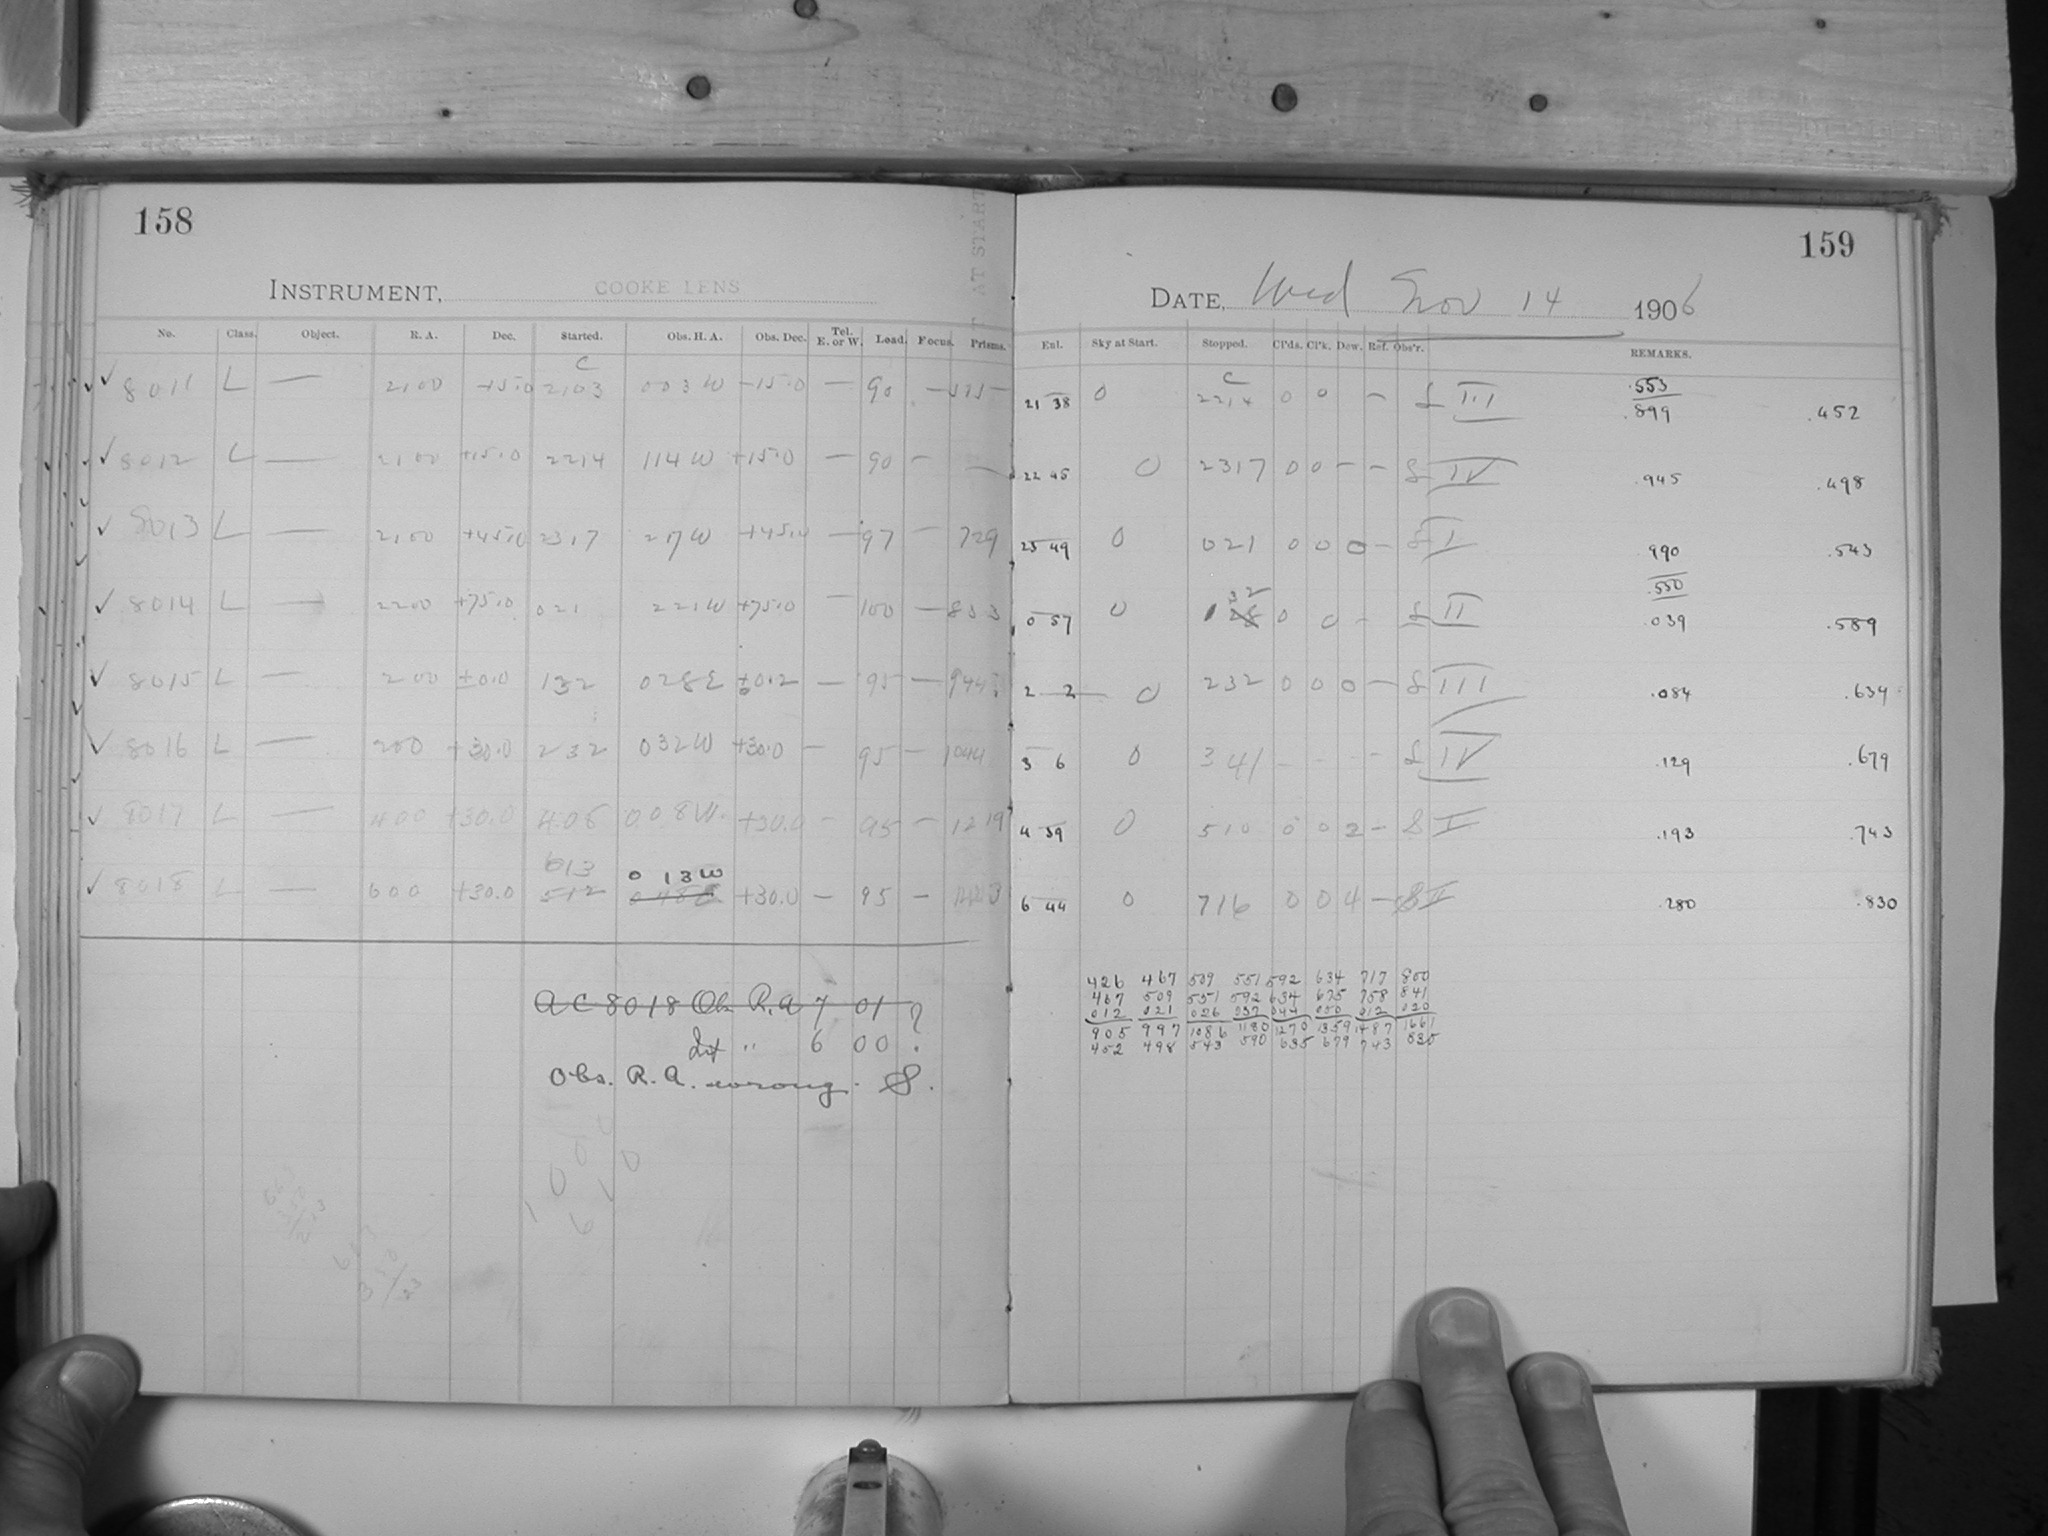 158
INSTRUMENT, COOKE LENS
AT START
No. Class. Object. R. A. Dec. Started. Obs. H. A. Obs. Dec. Tel. E. or W. Load. Focus. Prisms.
C
8011 L — 2100 +15.0 2103 003W +15.0 — 90 — 515 —
8012 L — 2100 +15.0 2214 114W +15.0 — 90 — —
8013 L — 2100 +45.0 2317 217W +45.0 — 97 — 729
8014 L — 2200 +75.0 021 221W +75.0 — 100 — 833
8015 L — 200 ±0.0 132 028E ±0.2 — 95 — 944
8016 L — 200 +30.0 232 032W +30.0 — 95 — 1044
8017 L — 400 +30.0 408 008W. +30.0 — 95 — 1219
613 0 13W
8018 L — 600 +30.0 512 048E +30.0 — 95 —
AC 8018 Obs R.A 7 01 ?
Int " 6 00 .
Obs. R.A. wrong. S.
159
DATE, Wed Nov 14 1906
Ent. Sky at Start. Stopped. Cl'ds. Cl'k. Dew. Ref. Obs'r. REMARKS.
C .553
21 38 0 2214 0 0 — S III .899 .452
22 45 0 2317 0 0 — — S IV .945 .498
23 49 0 021 0 0 0 — S I .990 .543
32 .550
0 57 0 1 28 0 0 - S II .039 .589
2 2 0 232 0 0 0 — S III .084 .634
3 6 0 341 - - - - S IV .129 .679
4 39 0 510 0 0 2 — S I .193 .743
6 44 0 716 0 0 4 — S II .280 .830
426 467 509 551 592 634 717 800
467 509 551 592 634 675 758 841
012 021 026 037 044 050 012 020
905 997 1086 1180 1270 1359 1487 1661
452 498 543 590 635 679 743 830